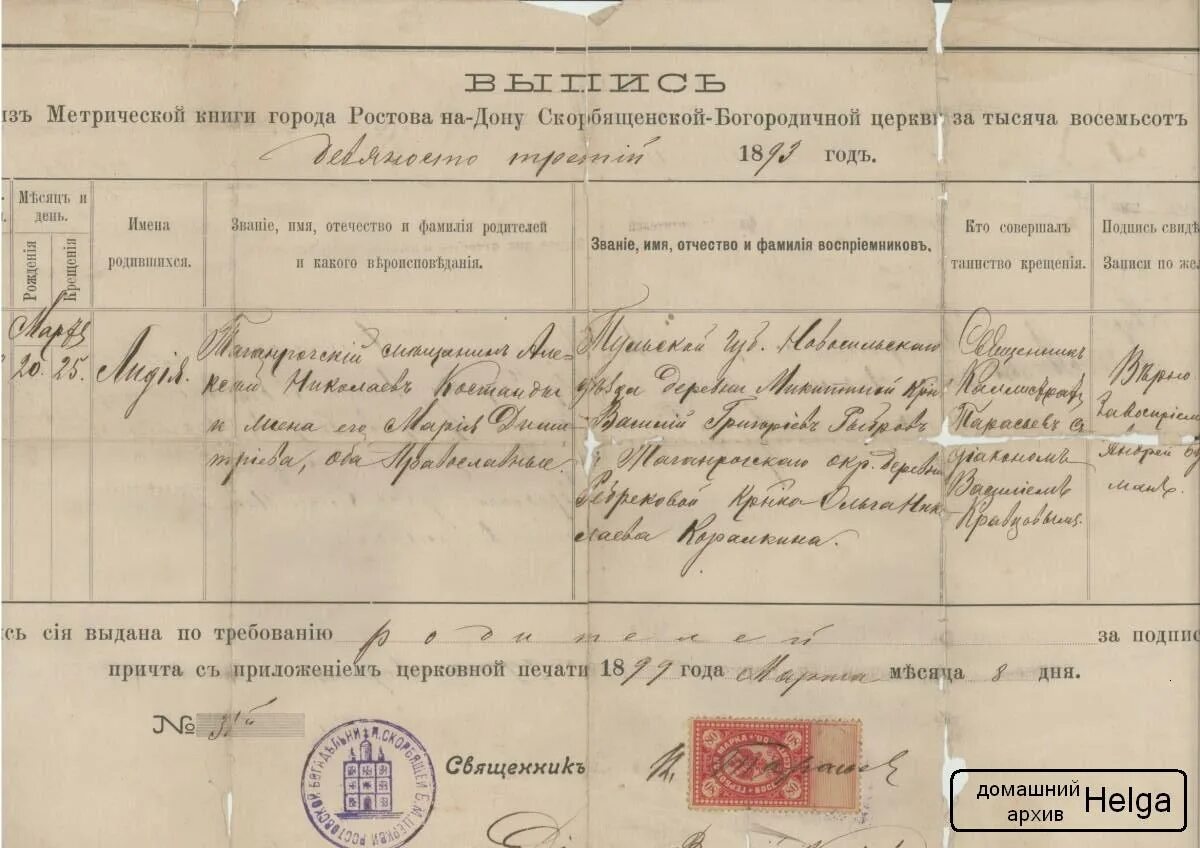 ВЫПИСЬ
изъ Метрической книги города Ростова на-Дону Скорбященской-Богородичной церкви за тысяча восемьсотъ
девяносто третій 1893 годъ.
Мѣсяцъ и
день.
Рожденія
Крещенія
Имена
родившихся.
Званіе, имя, отечество и фамилія родителей
и какого вѣроисповѣданія.
Званіе, имя, отчество и фамилія воспріемниковъ.
Кто совершалъ
таинство крещенія.
Подпись свидѣ
Записи по жел
Марта
20. 25.
Лидія.
Таганрогскій мѣщанинъ Але-
ксѣй Николаевъ Костанды
и жена его Марія Дмит
тріева, оба Православные.
Тульской губ. Новосильскаго
уѣзда деревни Микитиной Крѣн
Василій Григоріевъ
и Таганрогскаго окр. деревни
Крѣпка Ольга Ник
лаева Коралкина.
Священникъ
Каллистратъ
Тарасьевъ съ
діакономъ
Василіемъ
Кравцовымъ.
Вѣрно
Андрей
сь сія выдана по требованію родителей за подпис
причта съ приложеніемъ церковной печати 1899 года Марта мѣсяца 8 дня.
№ 31й
РОСТОВСКОЙ БОГАДѢЛЬНИ СКОРБЯЩЕЙ Б.М. ЦЕРКВИ
Священникъ К. Тарасьев
ГЕРБОВАЯ МАРКА
80
домашний
архив
Helga